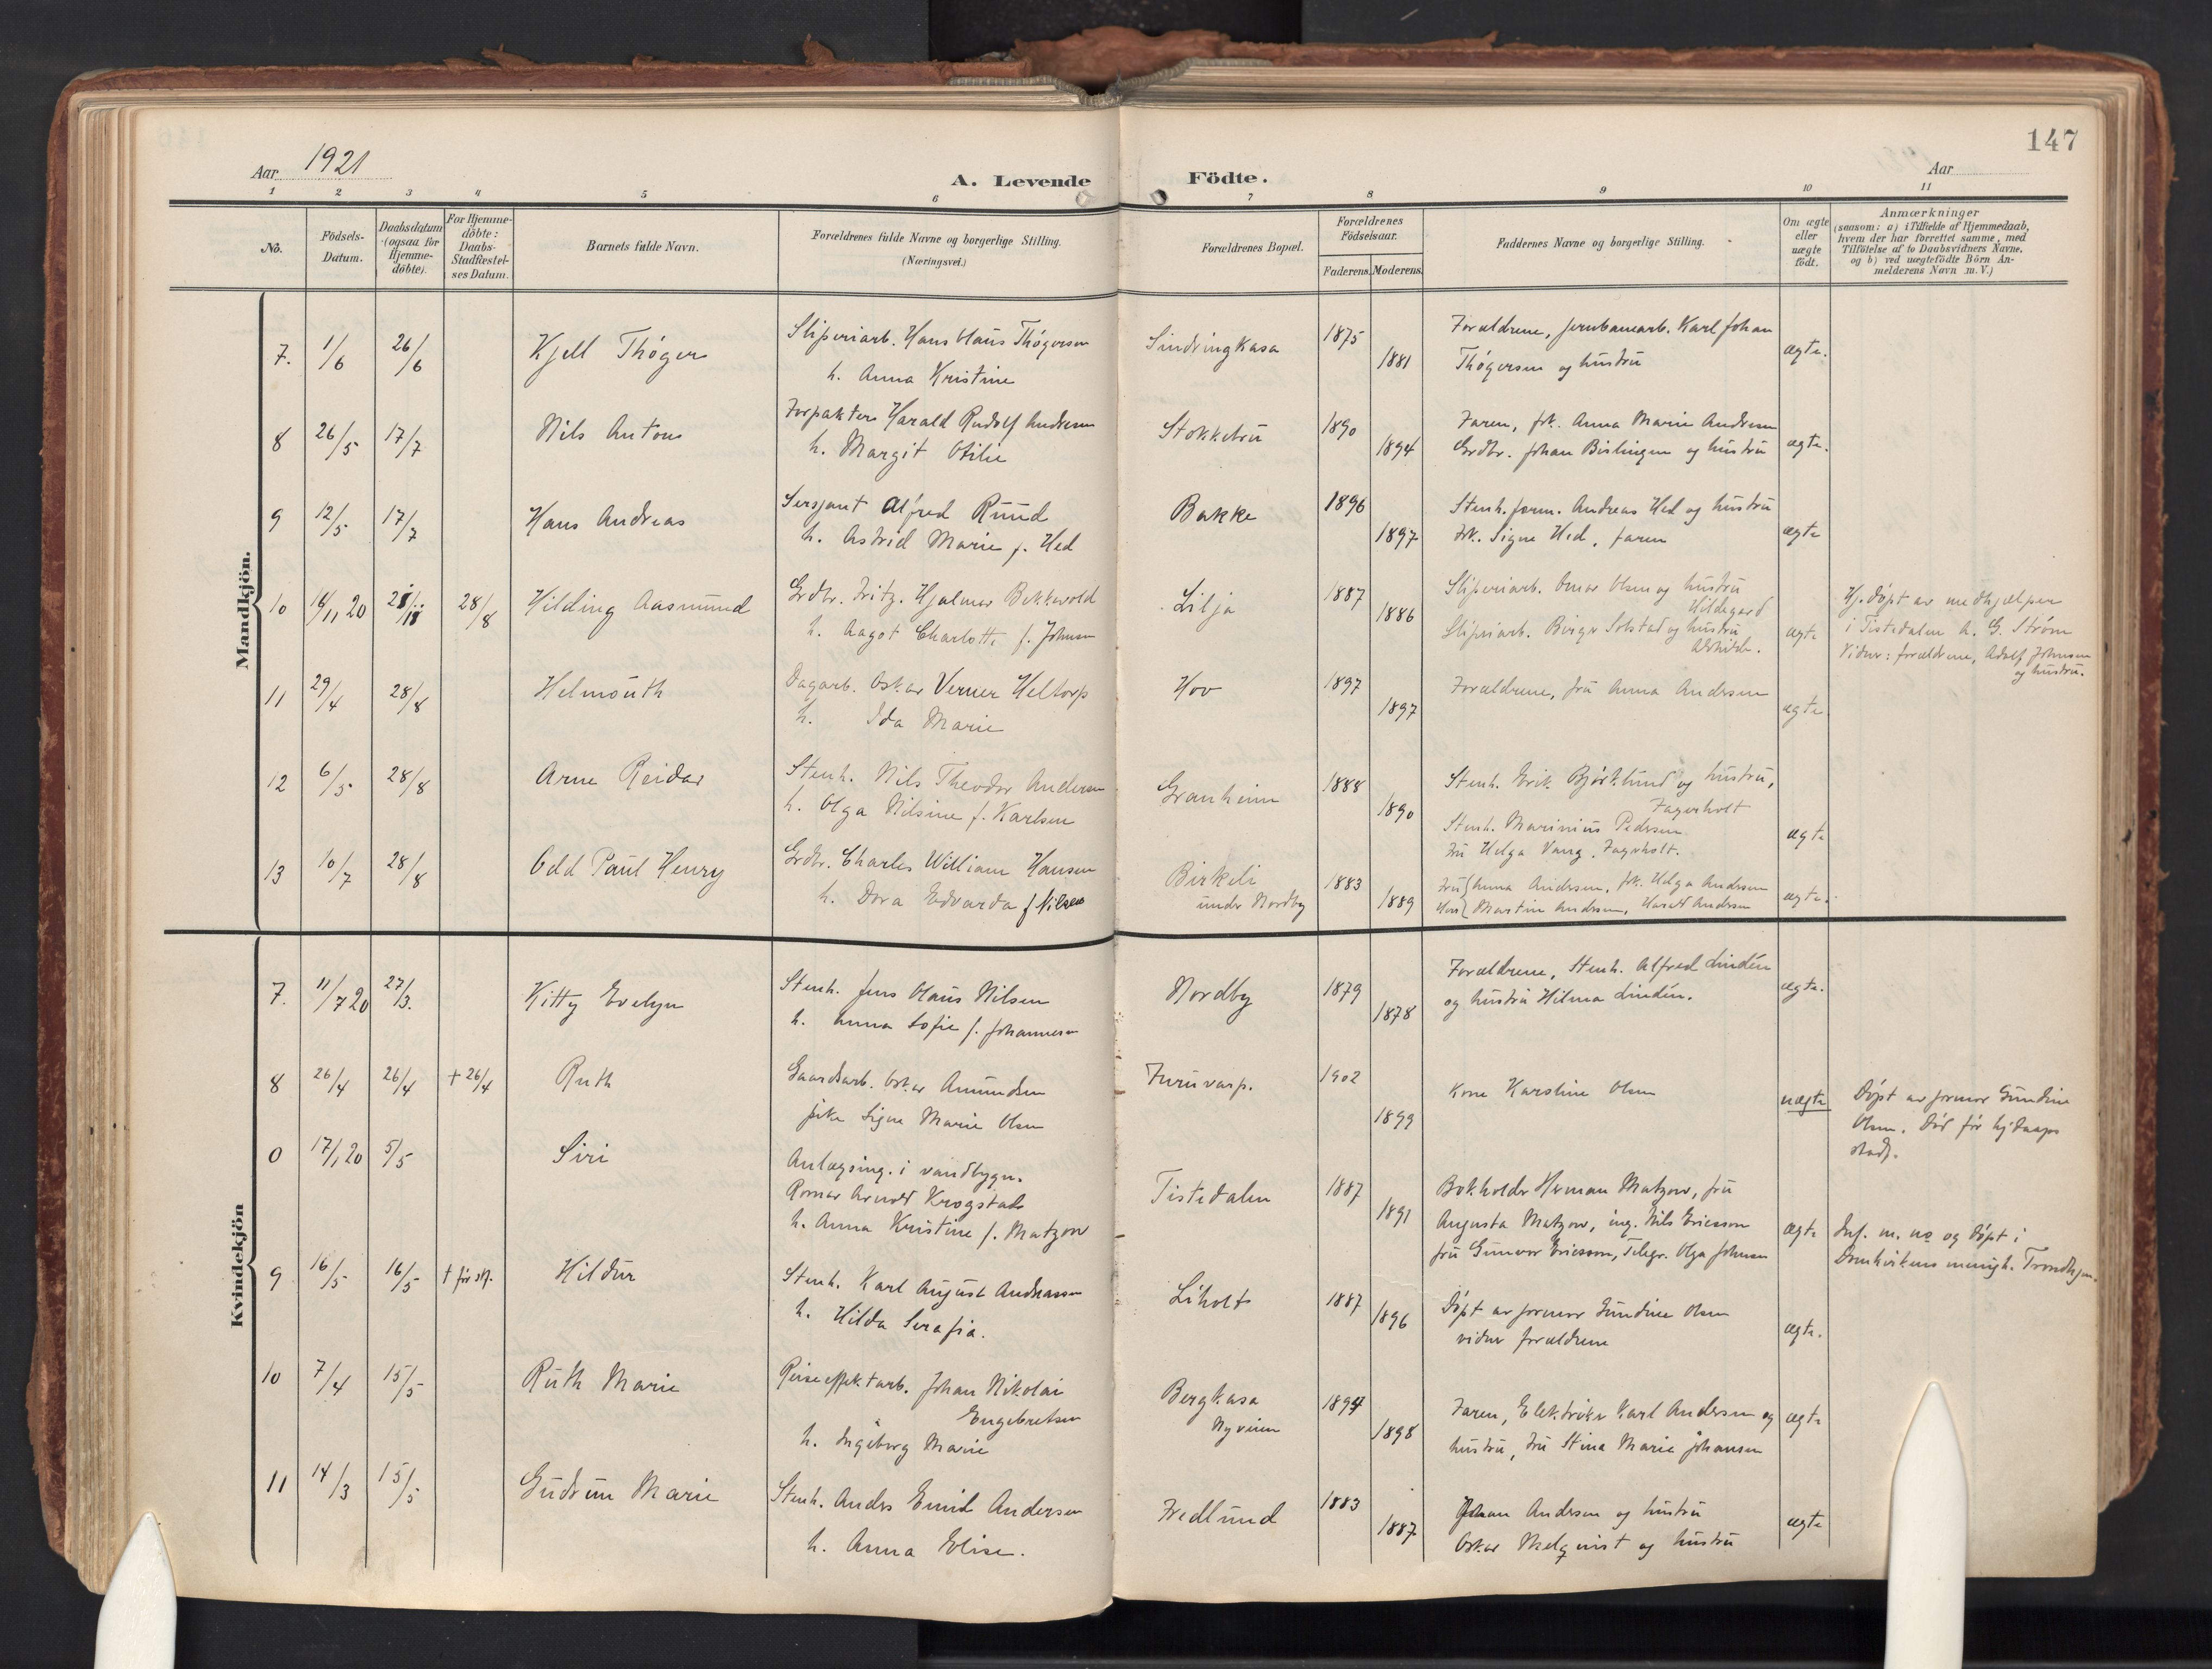 147
Aar 1921
A. Levende Födte.
Aar
1 2 3 4 5 6 7 8 9 10 11
No.
Födsels-
Datum.
Daabsdatum
(ogsaa for
Hjemme-
döbte).
For Hjemme-
döbte:
Daabs-
Stadfæstel-
ses Datum.
Barnets fulde Navn.
Forældrenes fulde Navne og borgerlige Stilling.
(Næringsvei.)
Forældrenes Bopæl.
Forældrenes
Födselsaar.
Faderens. Moderens.
Faddernes Navne og borgerlige Stilling.
Om ægte
eller
uægte
födt.
Anmærkninger
(saasom: a) i Tilfælde af Hjemmedaab,
hvem der har forrettet samme, med
Tilföielse af to Daabsvidners Navne.
og b) ved uægtefödte Börn An-
melderens Navn m. V.)
Mandkjön.
7. 1/6 26/6 Kjell Thøger Sliperiarb. Hans Olaus Thøgersen
h. Anna Kristine
Sindringkasa 1875 1881
Forældrene, jernbanearb. Karl Johan
Thøgersen og hustru
ægte.
8 26/5 17/7 Nils Anton Forpakter Harald Rudolf Andresen
h. Margit Otilie
Stokkebru 1890 1894
Faren, frk. Anna Marie Andresen
Grdbr. Johan Bislingen og hustru
ægte.
9 12/5 17/7 Hans Andreas Sersjant Alfred Ruud
h. Astrid Marie f. Hed
Bakke 1896 1897
Stenh.form. Andreas Hed og hustru
frk. Signe Hed, faren
ægte
10 14/11 20 28/8 Hilding Aasmund Grdbr. Fritz Hjalmar Bekkevold
h. Aagot Charlotte f. Johnsen
Lilja 1887 1886
Sliperiarb. Omar Olsen og hustru
Hildegard
Sliperiarb. Birger Solstad og hustru
ægte
Hj.døpt av medhjælper
i Tistedalen A. G. Strøm
Vidner: forældrene, Adolf Johnsen
og hustru.
11 29/4 28/8 Helmouth Dagarb. Oskar Verner Heltorp
h. Ida Marie
Hov 1897 1897
Forældrene, fru Anna Andersen
ægte
12 6/5 28/8 Arne Reidar Stenh. Nils Theodor Andersen
h. Olga Nilsine f. Karlsen
Granheim 1888 1890
Stenh. Erik Bjørklund og hustru,
Fagerholt
Stenh. Marinius Pedersen
fru Helga Vang, Fagerholt.
ægte
13 10/7 28/8 Odd Paul Henry Grdbr. Charles William Hansen
h. Dora Edvarda f. Nilsen
Birkeli
under Nordby
1883 1889
Fru Anna Andersen, frk. Helga Andersen
Herr Martin Andersen, Harald Andersen
ægte.
Kvindekjön
7. 11/7 20 27/3. Kitty Evelyn Stenh. Jens Olaus Nilsen
h. Anna Sofie f. Johannesen
Nordby 1879 1878
Forældrene, Stenh. Alfred Lindén
og hustru Hilma Lindén.
ægte.
8 26/4 26/4 + 26/4 Ruth Gaardsarb. Oskar Amundsen
pike Signe Marie Olsen
Furuvarp. 1902 1899
Kone Karoline Olsen
uægte
Døpt av formor Gundine
Olsen. Død før hj.daaps
stadf.
0 17/1 20 5/5 Siri Anlægsing. i vandbygn.
Romar Arnold Krogstad
h. Anna Kristine f. Matzow
Tistedalen 1887 1891
Bokholder Herman Matzow, fru
Augusta Matzow, ing. Nils Ericsson
fru Gunvor Ericsson, Telegr. Olga Johnsen
ægte
Inf. m. no og døpt i
Domkirkens menigh. Trondhjem.
9 16/5 16/5 + før stf. Hildur Stenh. Karl August Andreassen
h. Hilda Serafia.
Liholt 1887 1896
Døpt av formor Gundine Olsen
vidner forældrene
ægte.
10 7/4 15/5 Ruth Marie Reiseeffektarb. Johan Nikolai
Engebretsen
h. Ingeborg Marie
Bergkasa
Nyveien
1894 1898
Faren, Elektriker Karl Andersen og
hustru, fru Stina Marie Johansen
ægte
11 14/3 15/5 Gudrun Marie Stenh. Anders Emil Andersen
h. Anna Elise.
Fredlund 1883 1887
Johan Andersen og hustru
Oskar Melqvist og hustru
ægte